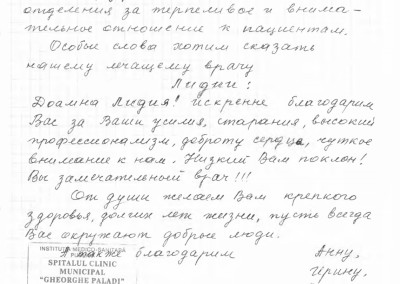 отделения за терпеливое и внима-
тельное отношение к пациентам.
Особые слова хотим сказать
нашему лечащему врачу
Лидии:
Доамна Лидия! искренне благодарим
Вас за Ваши усилия, старания, высокий
профессионализм, доброту сердца, чуткое
внимание к нам. Низкий Вам поклон!
Вы замечательный врач!!!
От души желаем Вам крепкого
здоровья, долгих лет жизни, пусть всегда
Вас окружают добрые люди.
А также благодарим Анну,
Ирину,
INSTITUTIA MEDICO-SANITARA
PUBLICA
SPITALUL CLINIC
MUNICIPAL
"GHEORGHE PALADI"